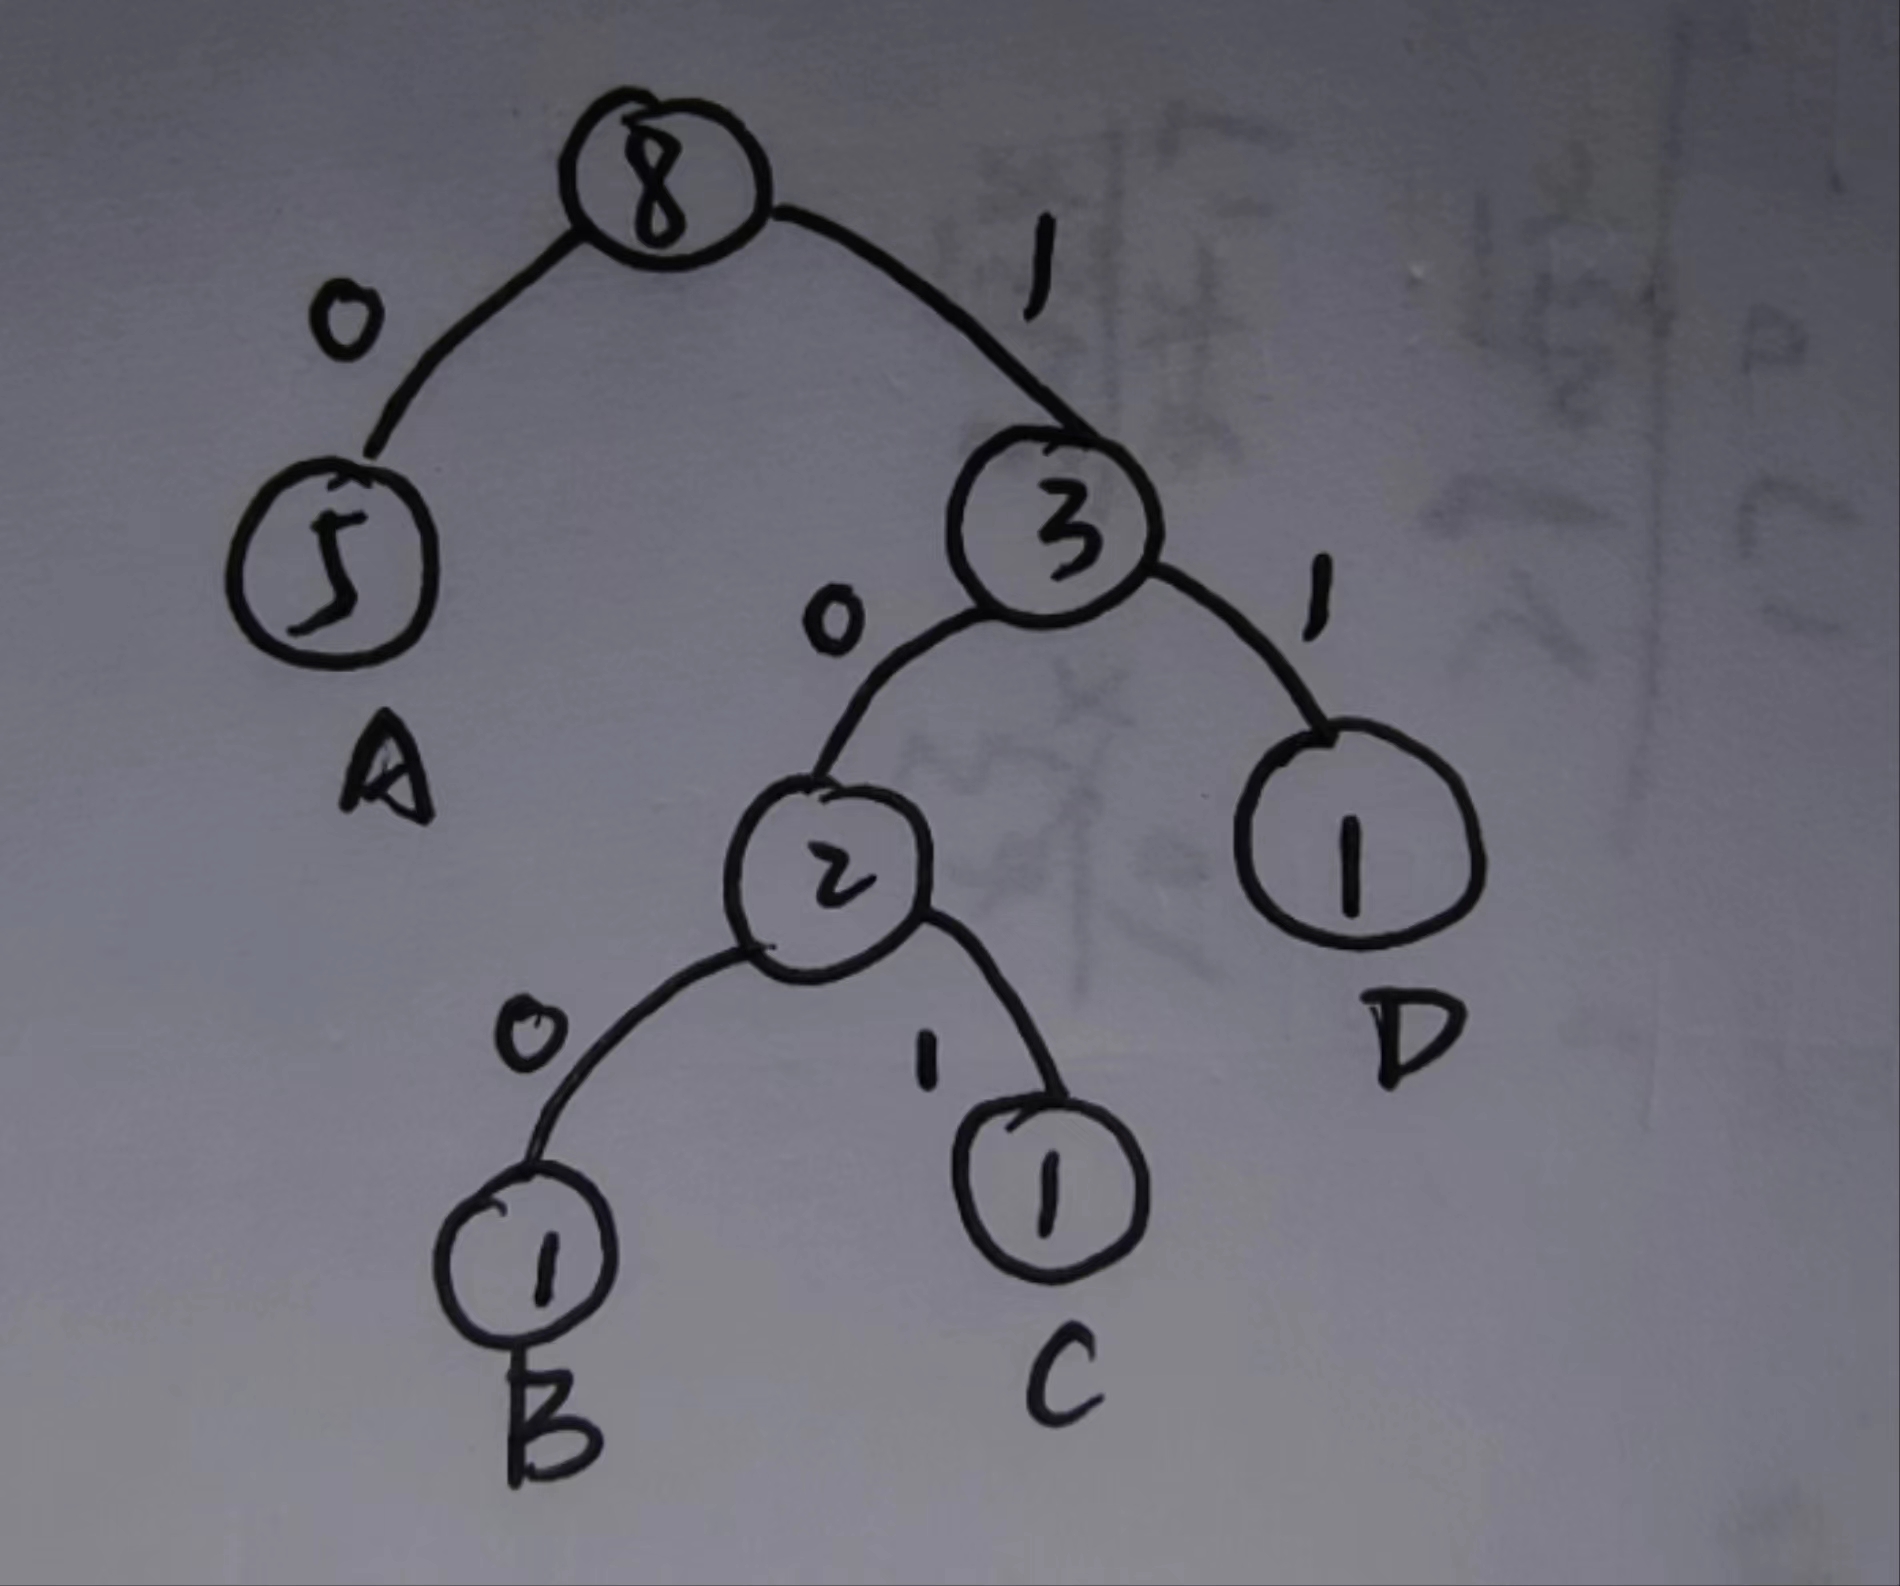 8
0 1
5 3
A
0 1
2 1
D
0 1
1 1
B C